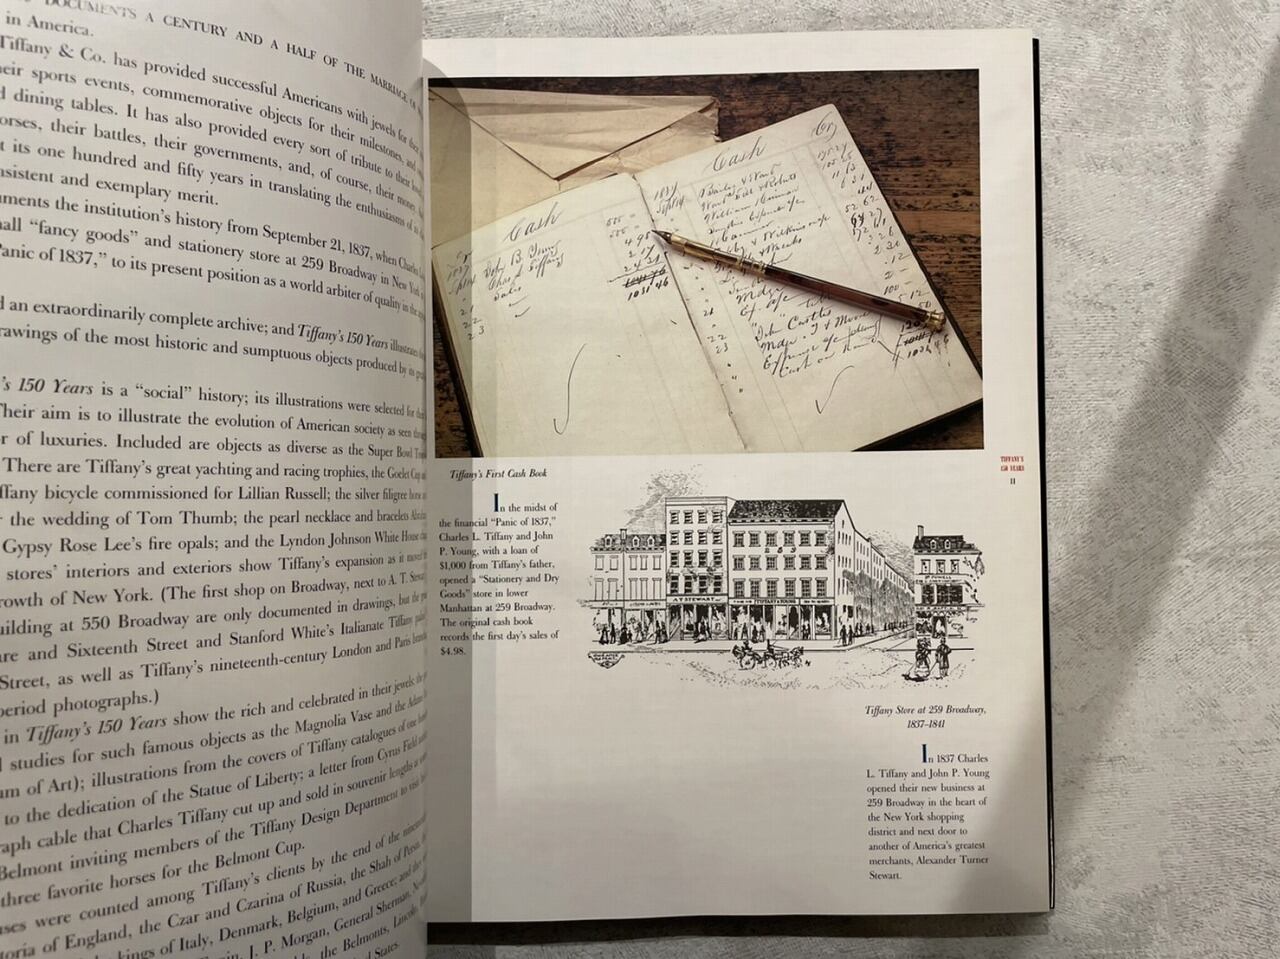 DOCUMENTS A CENTURY AND A HALF OF THE MARRIAGE OF
in America.
Tiffany & Co. has provided successful Americans with jewels for their
their sports events, commemorative objects for their milestones, and
dining tables. It has also provided every sort of tribute to their
their battles, their governments, and, of course, their money.
its one hundred and fifty years in translating the enthusiasms of
and exemplary merit.
the institution's history from September 21, 1837, when Charles
"fancy goods" and stationery store at 259 Broadway in New York
"Panic of 1837," to its present position as a world arbiter of quality in the
an extraordinarily complete archive; and Tiffany's 150 Years illustrates
drawings of the most historic and sumptuous objects produced by its
150 Years is a "social" history; its illustrations were selected for their
Their aim is to illustrate the evolution of American society as seen
of luxuries. Included are objects as diverse as the Super Bowl
There are Tiffany's great yachting and racing trophies, the Goelet Cup
Tiffany bicycle commissioned for Lillian Russell; the silver filigree horse
the wedding of Tom Thumb; the pearl necklace and bracelets
Gypsy Rose Lee's fire opals; and the Lyndon Johnson White House
stores' interiors and exteriors show Tiffany's expansion as it moved
growth of New York. (The first shop on Broadway, next to A. T. Stewart
building at 550 Broadway are only documented in drawings, but the
and Sixteenth Street and Stanford White's Italianate Tiffany
Street, as well as Tiffany's nineteenth-century London and Paris
period photographs.)
in Tiffany's 150 Years show the rich and celebrated in their jewels;
studies for such famous objects as the Magnolia Vase and the Adams
of Art); illustrations from the covers of Tiffany catalogues of one
to the dedication of the Statue of Liberty; a letter from Cyrus Field
cable that Charles Tiffany cut up and sold in souvenir lengths
Belmont inviting members of the Tiffany Design Department to visit
three favorite horses for the Belmont Cup.
were counted among Tiffany's clients by the end of the
of England, the Czar and Czarina of Russia, the Shah of Persia,
kings of Italy, Denmark, Belgium, and Greece; and
J. P. Morgan, General Sherman,
the Belmonts, Lincoln,
States.
Cash
Cash
Tiffany's First Cash Book
In the midst of
the financial "Panic of 1837,"
Charles L. Tiffany and John
P. Young, with a loan of
$1,000 from Tiffany's father,
opened a "Stationery and Dry
Goods" store in lower
Manhattan at 259 Broadway.
The original cash book
records the first day's sales of
$4.98.
TIFFANY'S
150 YEARS
11
259
A T STEWART
TIFFANY & YOUNG
Tiffany Store at 259 Broadway,
1837–1841
In 1837 Charles
L. Tiffany and John P. Young
opened their new business at
259 Broadway in the heart of
the New York shopping
district and next door to
another of America's greatest
merchants, Alexander Turner
Stewart.